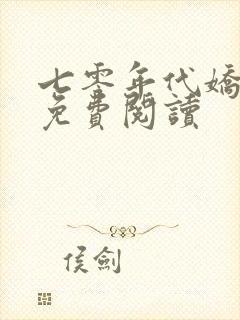 七零年代嬌
免費閱讀
侯劍